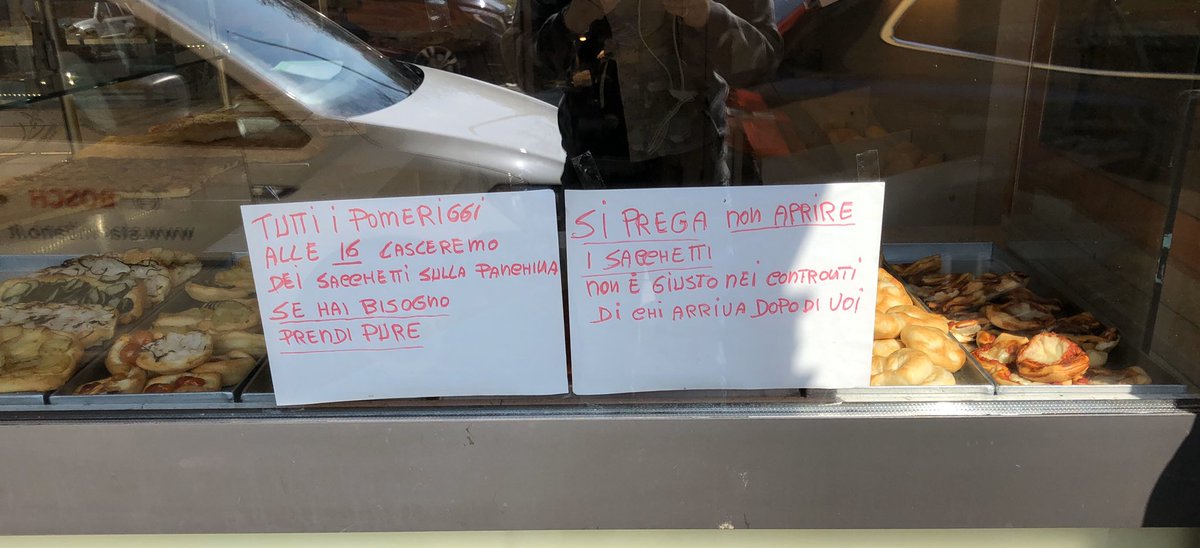 TUTTI i POMERIGGI
ALLE 16 LASCEREMO
DEI SACCHETTI SULLA PANCHINA
SE HAI BISOGNO
PRENDI PURE
SI PREGA non APRIRE
I SACCHETTI
non È GIUSTO NEI CONTRONTI
DI CHI ARRIVA DOPO DI VOI
BOSCH